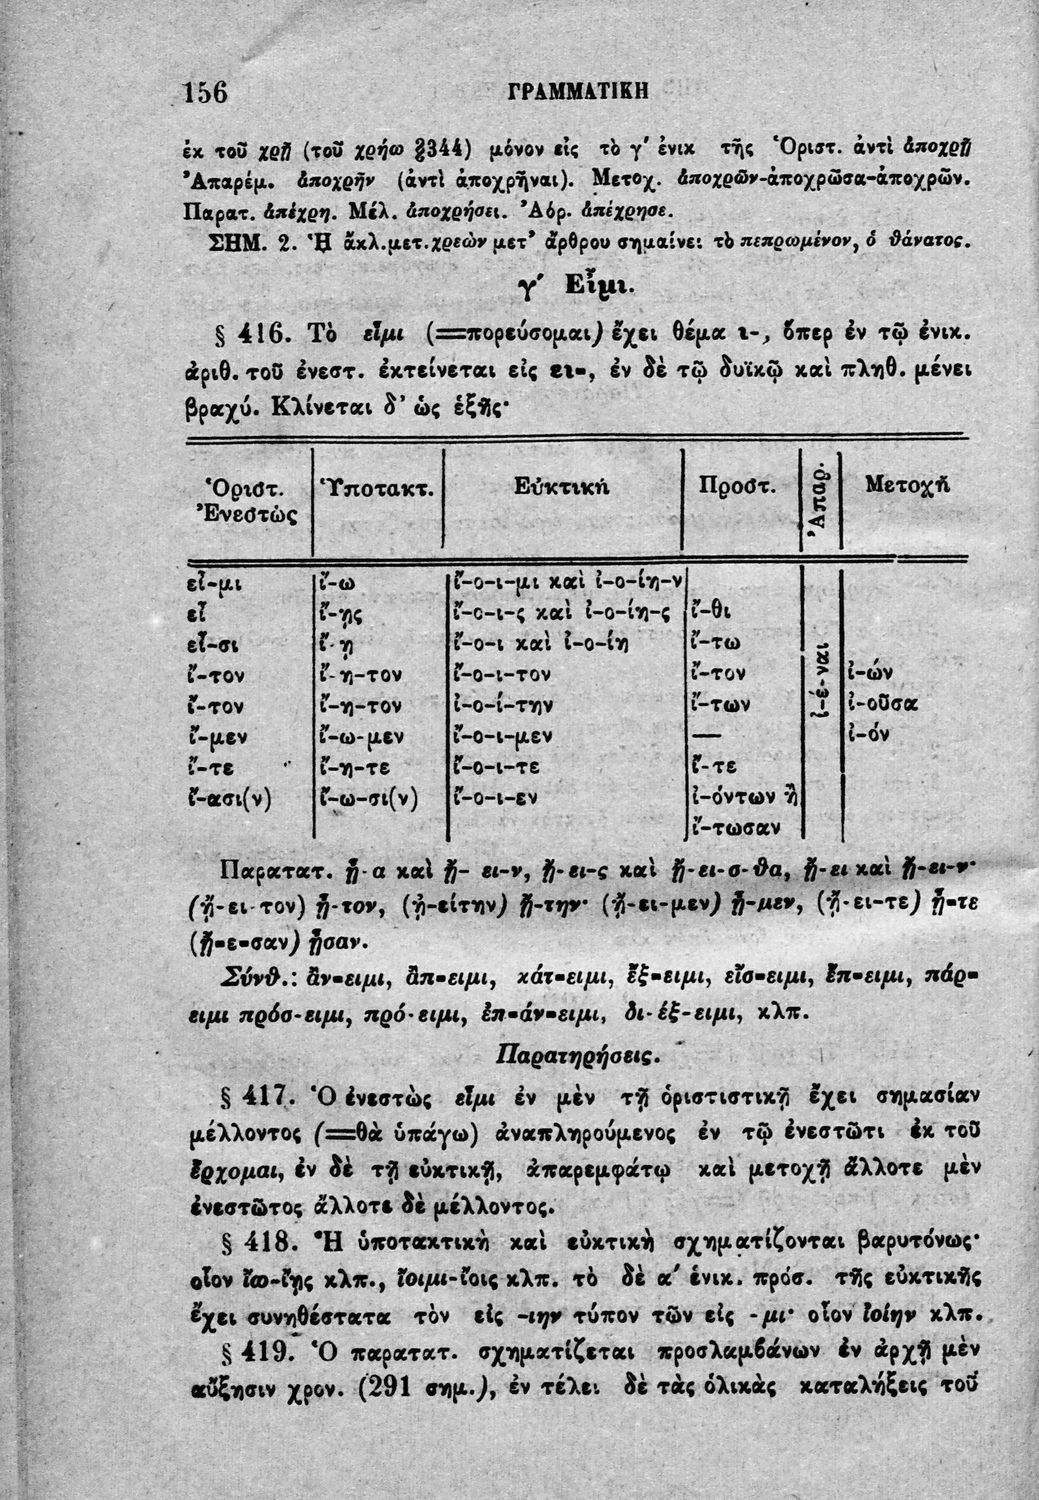 156 ΓΡΑΜΜΑΤΙΚΗ
ἐκ τοῦ χρῇ (τοῦ χρήω §344) μόνον εἰς τὸ γ' ἑνικ τῆς Ὁριστ. ἀντὶ ἀποχρῇ
Ἀπαρέμ. ἀποχρῆν (ἀντὶ ἀποχρῆναι). Μετοχ. ἀποχρῶν-ἀποχρῶσα-ἀποχρῶν.
Παρατ. ἀπέχρη. Μέλ. ἀποχρήσει. Ἀόρ. ἀπέχρησε.
ΣΗΜ. 2. Ἡ ἄκλ.μετ.χρεὼν μετ' ἄρθρου σημαίνει τὸ πεπρωμένον, ὁ θάνατος.
γ' Εἶμι.
§ 416. Τὸ εἶμι (=πορεύσομαι) ἔχει θέμα ι-, ὅπερ ἐν τῷ ἑνικ.
ἀριθ. τοῦ ἐνεστ. ἐκτείνεται εἰς ει-, ἐν δὲ τῷ δυϊκῷ καὶ πληθ. μένει
βραχύ. Κλίνεται δ' ὡς ἑξῆς·
Ὁριστ. Ὑποτακτ. Εὐκτικὴ Προστ. Ἀπαρ. Μετοχὴ
Ἐνεστὼς
εἶ-μι ἴ-ω ἴ-ο-ι-μι καὶ ἰ-ο-ίη-ν
εἶ ἴ-ῃς ἴ-ο-ι-ς καὶ ἰ-ο-ίη-ς ἴ-θι
εἶ-σι ἴ-ῃ ἴ-ο-ι καὶ ἰ-ο-ίη ἴ-τω
ἴ-τον ἴ-η-τον ἴ-ο-ι-τον ἴ-τον ἰ-έ-ναι ἰ-ών
ἴ-τον ἴ-η-τον ἰ-ο-ί-την ἴ-των ἰ-οῦσα
ἴ-μεν ἴ-ω-μεν ἴ-ο-ι-μεν — ἰ-όν
ἴ-τε ἴ-η-τε ἴ-ο-ι-τε ἴ-τε
ἴ-ασι(ν) ἴ-ω-σι(ν) ἴ-ο-ι-εν ἰ-όντων ἢ
ἴ-τωσαν
Παρατατ. ᾖ-α καὶ ᾔ- ει-ν, ᾔ-ει-ς καὶ ᾔ-ει-σ-θα, ᾔ-ει καὶ ᾔ-ει-ν·
(ᾔ-ει-τον) ᾖ-τον, (ᾐ-είτην) ᾔ-την· (ᾔ-ει-μεν) ᾖ-μεν, (ᾔ-ει-τε) ᾖ-τε
(ᾔ-ε-σαν) ᾖσαν.
Σύνθ.: ἄν-ειμι, ἄπ-ειμι, κάτ-ειμι, ἔξ-ειμι, εἴσ-ειμι, ἔπ-ειμι, πάρ-
ειμι πρόσ-ειμι, πρό-ειμι, ἐπ-άν-ειμι, δι-έξ-ειμι, κλπ.
Παρατηρήσεις.
§ 417. Ὁ ἐνεστὼς εἶμι ἐν μὲν τῇ ὁριστιστικῇ ἔχει σημασίαν
μέλλοντος (=θὰ ὑπάγω) ἀναπληρούμενος ἐν τῷ ἐνεστῶτι ἐκ τοῦ
ἔρχομαι, ἐν δὲ τῇ εὐκτικῇ, ἀπαρεμφάτῳ καὶ μετοχῇ ἄλλοτε μὲν
ἐνεστῶτος ἄλλοτε δὲ μέλλοντος.
§ 418. Ἡ ὑποτακτικὴ καὶ εὐκτικὴ σχηματίζονται βαρυτόνως·
οἷον ἴω-ἴῃς κλπ., ἴοιμι-ἴοις κλπ. τὸ δὲ α' ἑνικ. πρόσ. τῆς εὐκτικῆς
ἔχει συνηθέστατα τὸν εἰς -ιην τύπον τῶν εἰς -μι· οἷον ἰοίην κλπ.
§ 419. Ὁ παρατατ. σχηματίζεται προσλαμβάνων ἐν ἀρχῇ μὲν
αὔξησιν χρον. (291 σημ.), ἐν τέλει δὲ τὰς ὁλικὰς καταλήξεις τοῦ